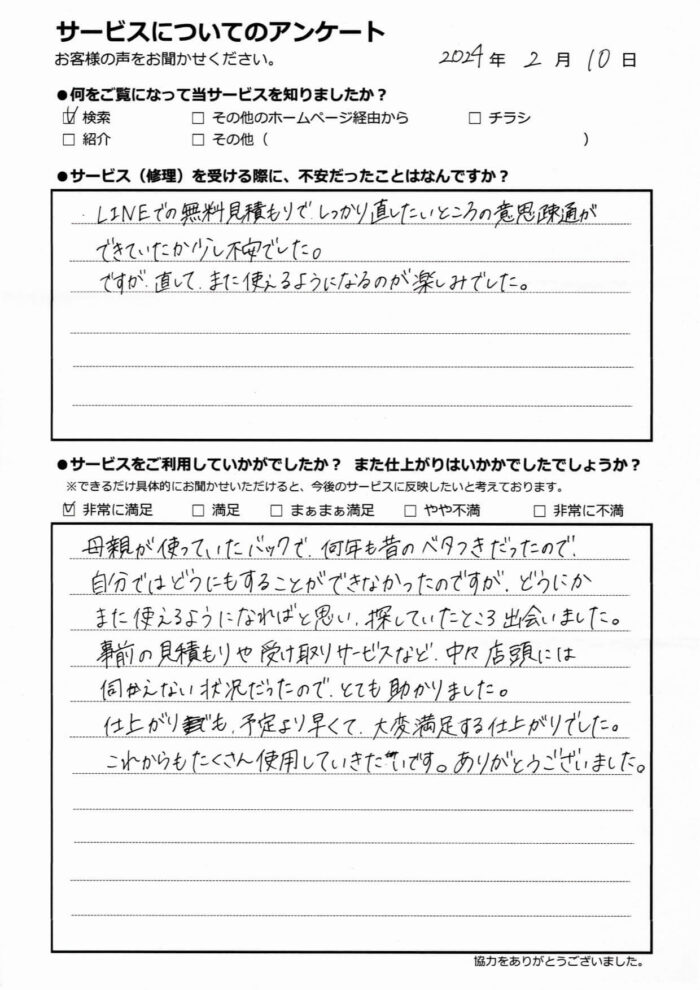 サービスについてのアンケート
お客様の声をお聞かせください。 2024年 2月 10日
●何をご覧になって当サービスを知りましたか？
☑ 検索 □ その他のホームページ経由から □ チラシ
□ 紹介 □ その他（ ）
●サービス（修理）を受ける際に、不安だったことはなんですか？
・LINEでの無料見積もりで、しっかり直したいところの意思疎通が
できていたか少し不安でした。
ですが、直して、また使えるようになるのが楽しみでした。
●サービスをご利用していかがでしたか？ また仕上がりはいかかでしたでしょうか？
※できるだけ具体的にお聞かせいただけると、今後のサービスに反映したいと考えております。
☑ 非常に満足 □ 満足 □ まぁまぁ満足 □ やや不満 □ 非常に不満
母親が使っていたバックで、何年も昔のベタつきだったので、
自分ではどうにもすることができなかったのですが、どうにか
また使えるようになればと思い、探していたところ出会いました。
事前の見積もりや受け取りサービスなど、中々店頭には
伺かえない状況だったので、とても助かりました。
仕上がりも、予定より早くて、大変満足する仕上がりでした。
これからもたくさん使用していきたいです。ありがとうございました。
協力をありがとうございました。